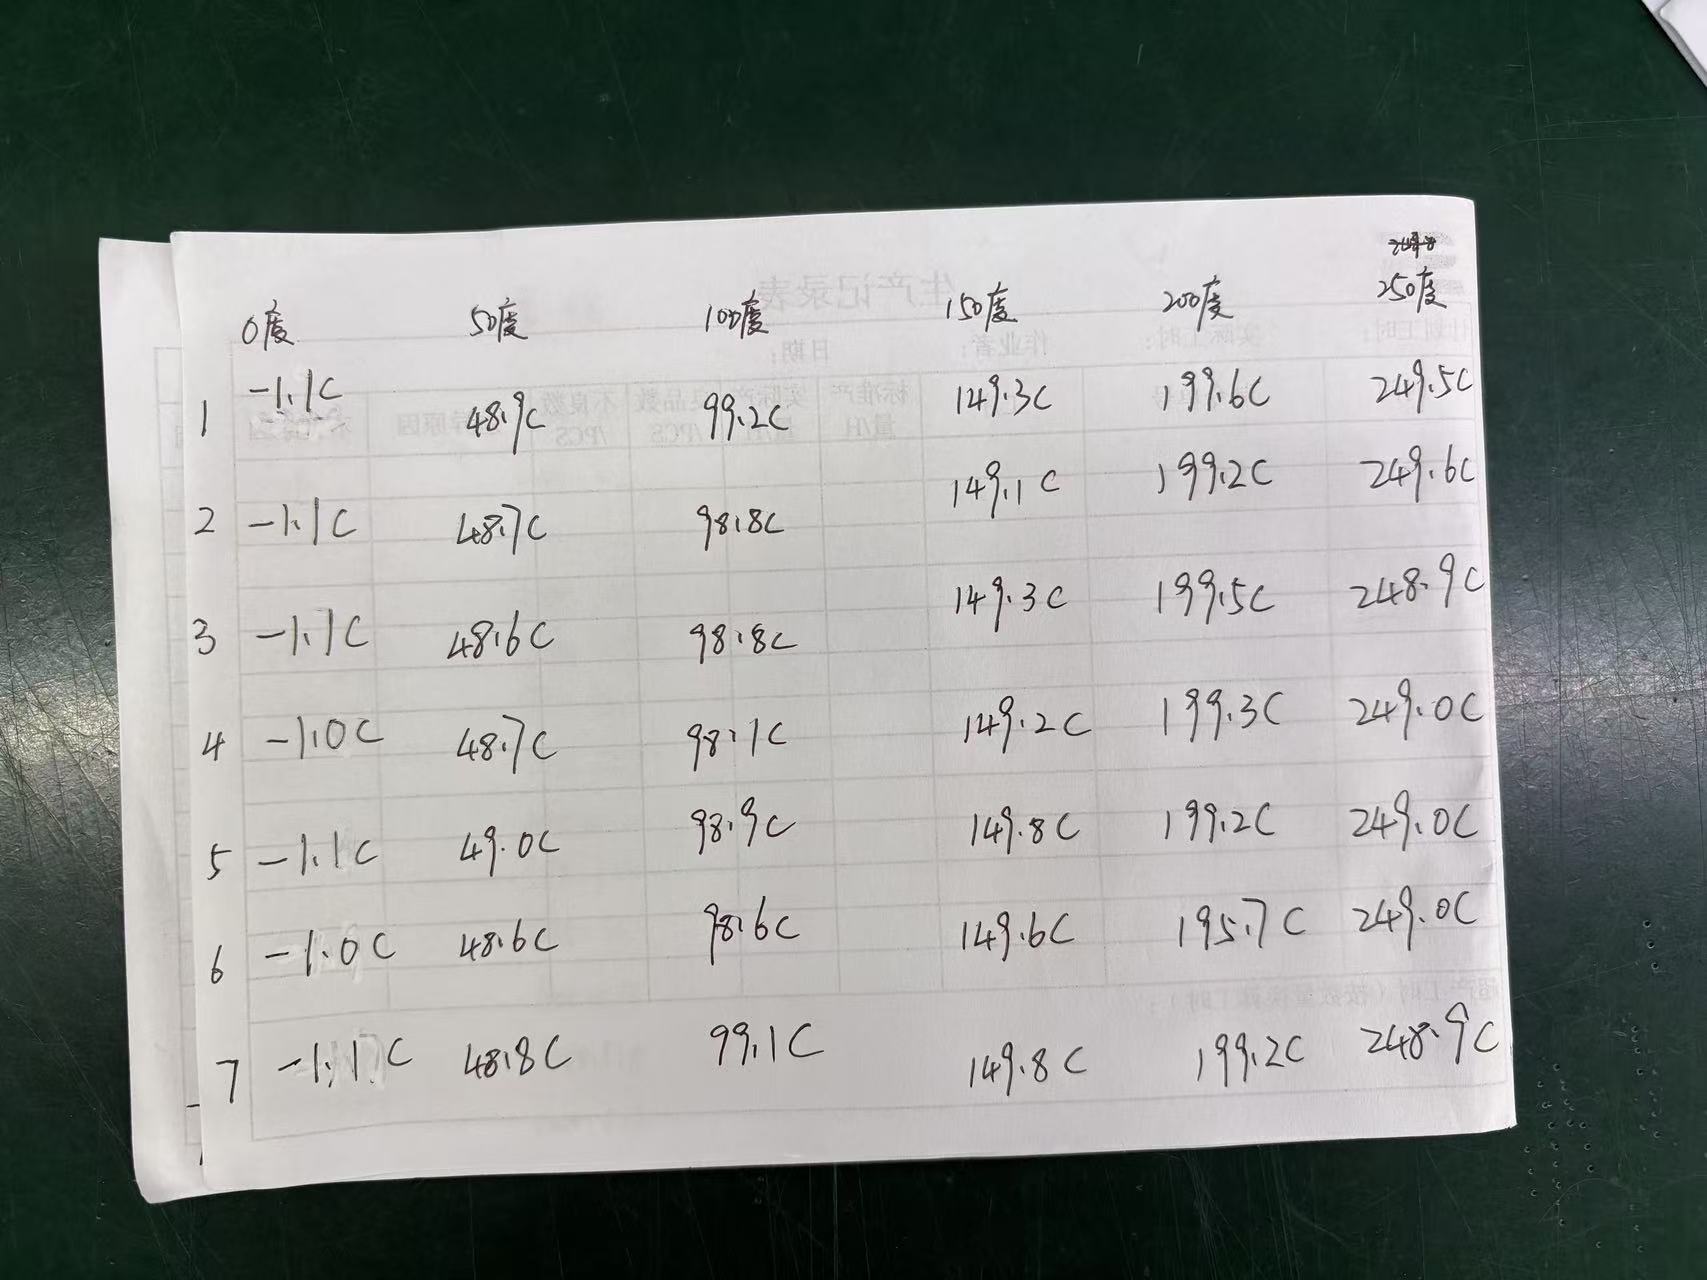 0度 50度 100度 150度 200度 250度
1 -1.1C 48.9C 99.2C 149.3C 199.6C 249.5C
2 -1.1C 48.7C 98.8C 149.1C 199.2C 249.6C
3 -1.1C 48.6C 98.8C 149.3C 199.5C 248.9C
4 -1.0C 48.7C 98.1C 149.2C 199.3C 249.0C
5 -1.1C 49.0C 98.9C 149.8C 199.2C 249.0C
6 -1.0C 48.6C 98.6C 149.6C 195.7C 249.0C
7 -1.1C 48.8C 99.1C 149.8C 199.2C 248.9C